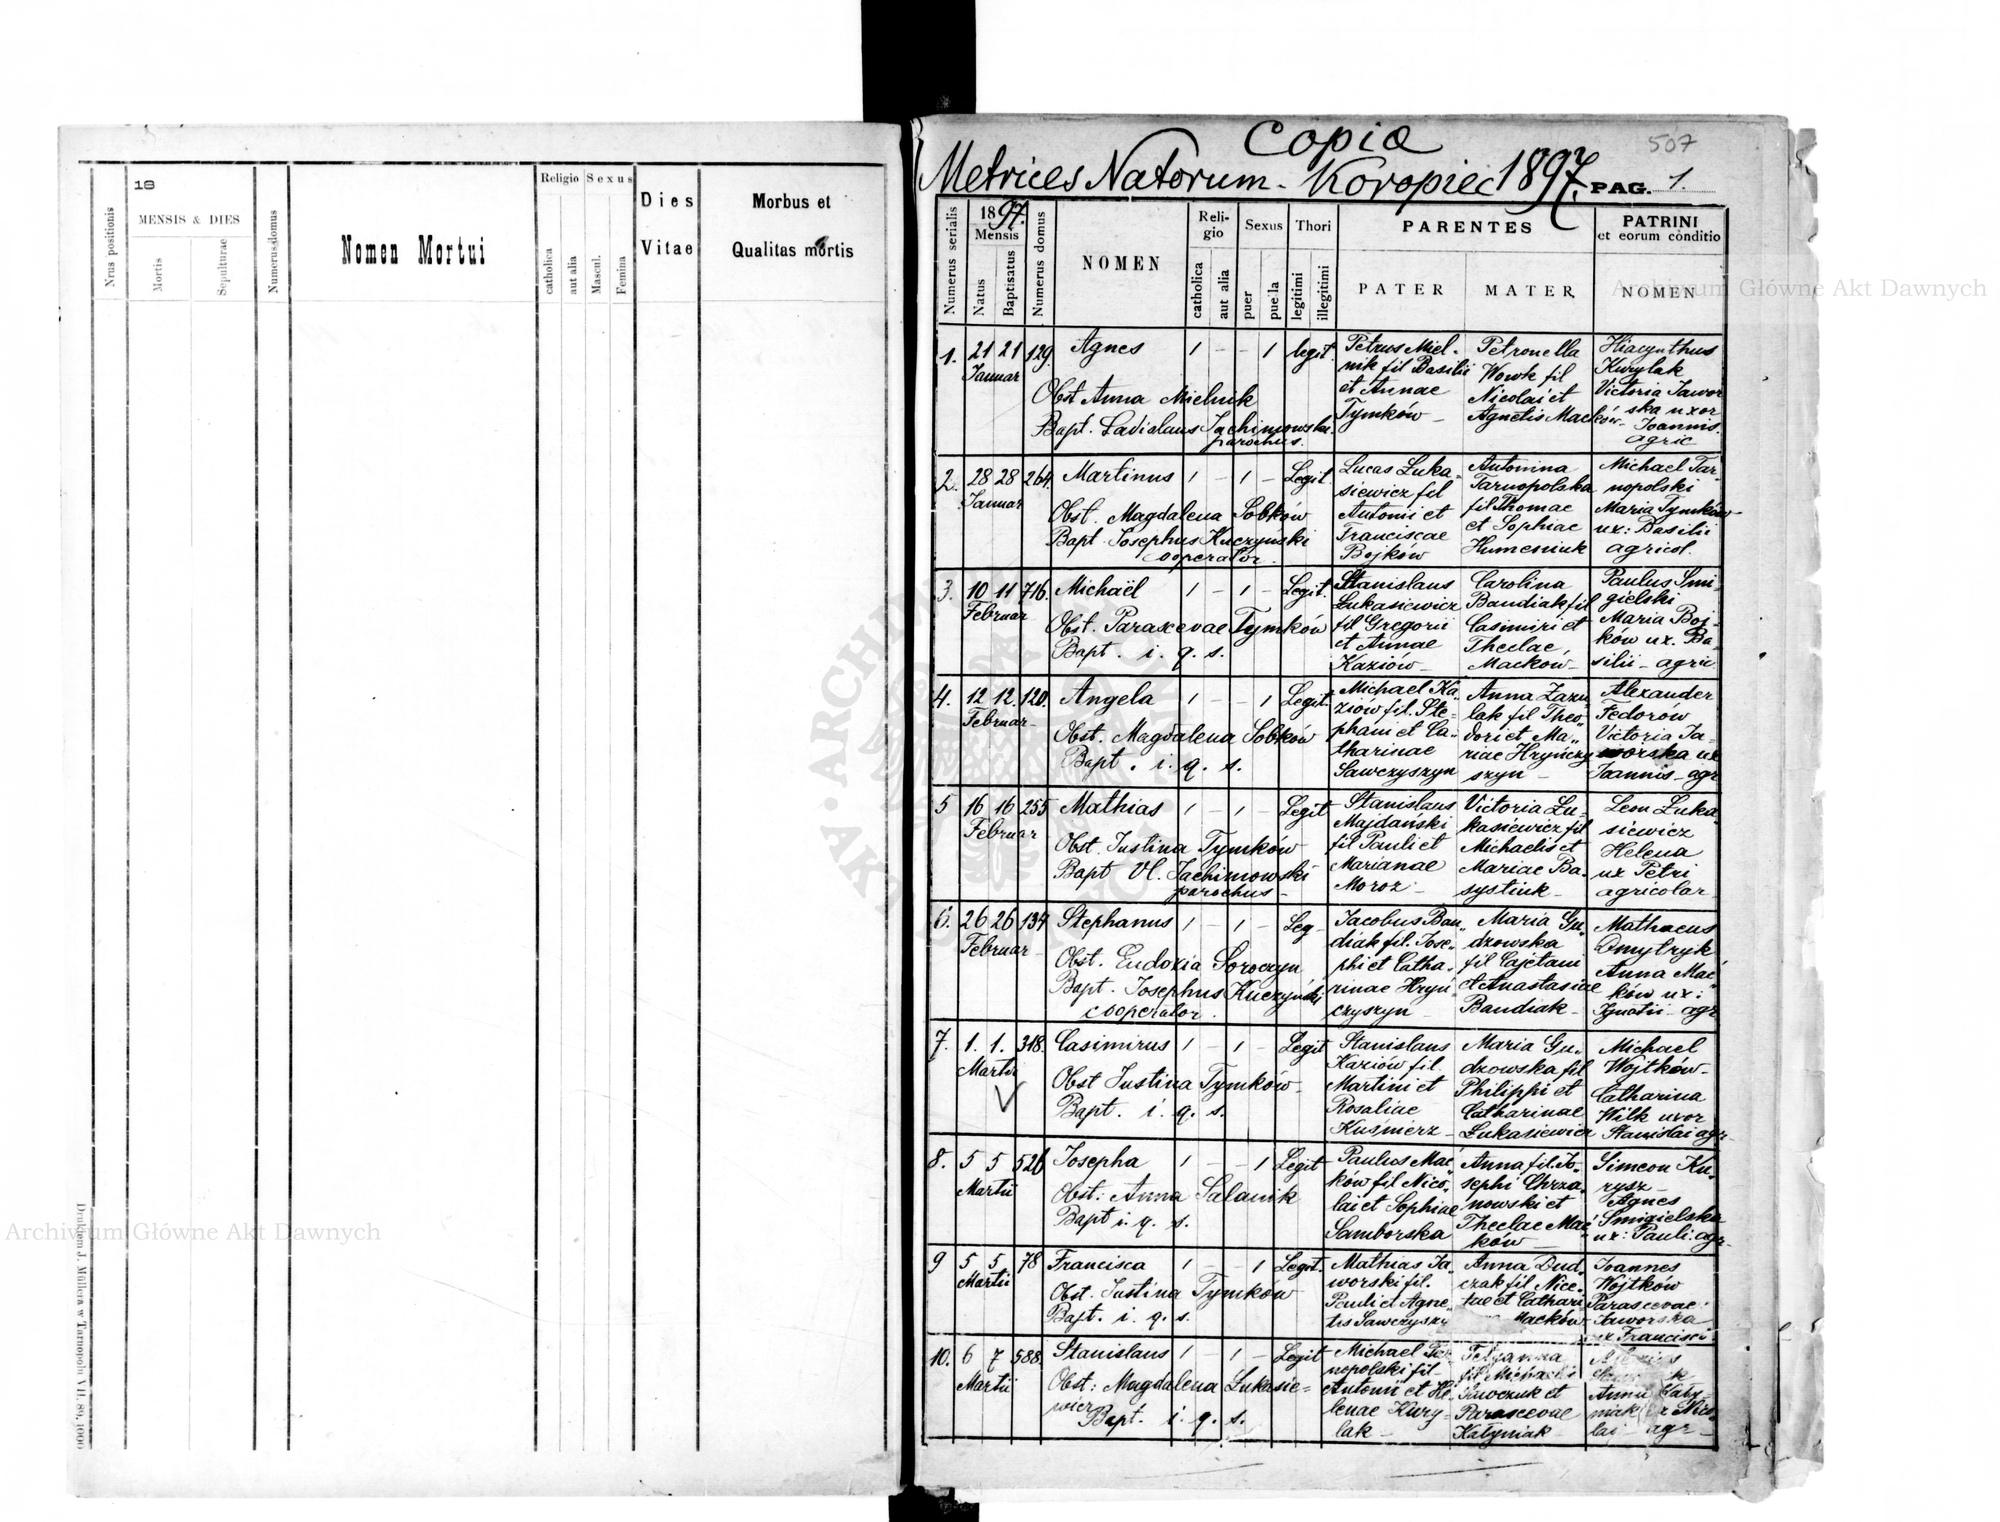 18
MENSIS & DIES
Nrus positionis
Mortis
Sepulturae
Numerus domus
Nomen Mortui
Religio
catholica
aut alia
Sexus
Mascul.
Femina
Dies
Vitae
Morbus et
Qualitas mortis
Drukiem J. Müllera w Tarnopolu VII. 89. 1000
Copia
507
Metrices Natorum - Koropiec 1897. PAG. 1.
Numerus serialis
1897.
Mensis
Natus
Baptisatus
Numerus domus
NOMEN
Reli-
gio
catholica
aut alia
Sexus
puer
puella
Thori
legitimi
illegitimi
PARENTES
PATER
MATER
PATRINI
et eorum conditio
NOMEN
1. 21 21 129. Agnes 1 - - 1 legit.
Januar
Obst Anna Mielnik
Bapt. Ladislaus Jachimowski
parochus.
Petrus Miel-
nik fil Basilii
et Annae
Tymków -
Petronella
Wowk fil
Nicolai et
Agnetis Maćków -
Hiacynthus
Kurylak
Victoria Jawor
ska uxor
Joannis.
agric
2. 28 28 264. Martinus 1 - 1 - Legit.
Januar
Obst. Magdalena Sobków
Bapt Josephus Kuczyński
cooperator.
Lucas Łuka-
siewicz fil
Antonii et
Franciscae
Bojków
Antonina
Tarnopolska
fil Thomae
et Sophiae
Humeniuk
Michael Tar-
nopolski
Maria Tymków
ux: Basilii
agricol.
3. 10 11 716. Michaël 1 - 1 - Legit.
Februar
Obst. Parascevae Tymków
Bapt. i. q. s.
Stanislaus
Łukasiewicz
fil Gregorii
et Annae
Kaziów -
Carolina
Baudiak fil
Casimiri et
Theclae
Maćków -
Paulus Smi-
gielski
Maria Boj-
ków ux. Ba-
silii - agric.
4. 12 12. 120. Angela 1 - - 1 Legit.
Februar
Obst. Magdalena Sobków
Bapt. i. q. s.
Michael Ka-
ziów fil. Ste-
phani et Ca-
tharinae
Sawczyszyn
Anna Zazu-
lak fil Theo-
dori et Ma-
riae Hryńczy
szyn -
Alexander
Fedorów
Victoria Ja-
worska ux
Joannis - agr
5 16 16 255 Mathias 1 - 1 - Legit
Februar
Obst. Justina Tymków
Bapt Vl. Jachimowski
parochus -
Stanislaus
Majdański
fil Pauli et
Marianae
Moroz -
Victoria Łu-
kasiewicz fil
Michaelis et
Mariae Ba-
systiuk -
Leon Łuka-
siewicz
Helena
ux Petri
agricolar
6. 26 26 134 Stephanus 1 - 1 - Leg -
Februar
Obst. Eudoxia Soroczyn
Bapt. Josephus Kuczyński
cooperator.
Jacobus Bau-
diak fil. Jose-
phi et Catha-
rinae Hryń-
czyszyn -
Maria Gu-
dzowska
fil Cajetani
et Anastasiae
Baudiak -
Mathaeus
Dmytryk
Anna Mać-
ków ux:
Ignatii - agr
7. 1. 1. 318. Casimirus 1 - 1 - Legit
Martii
Obst Justina Tymków -
Bapt. i. q. s.
Stanislaus
Kaziów fil.
Martini et
Rosaliae
Kuśnierz -
Maria Gu-
dzowska fil
Philippi et
Catharinae
Łukasiewicz
Michael
Wojtków -
Catharina
Wilk uxor
Stanislai agr -
8. 5 5 526 Josepha 1 - - 1 Legit
Martii
Obst: Anna Salanik
Bapt i. q. s.
Paulus Mać-
ków fil Nico-
lai et Sophiae
Samborska
Anna fil. Jo-
sephi Chrza-
nowski et
Theclae Mać-
ków -
Simeon Ku-
rysz -
Agnes
Smigielska
ux: Pauli. agr -
9 5 5 78 Francisca 1 - - 1 Legit.
Martii
Obst. Justina Tymków
Bapt. i. q. s.
Mathias Ja-
worski fil.
Pauli et Agne-
tis Sawczyszy
Anna Dud-
czak fil Nice-
tae et Cathari
Maćków
Joannes
Wojtków
Parascevae
Jaworska
ux Francisci
10. 6 7 588. Stanislaus 1 - 1 - Legit
Martii
Obst: Magdalena Łukasie-
wicz
Bapt. i. q. s.
Michael Tar-
nopolski fil -
Antonii et He-
lenae Kury-
lak -
fil Michaelis
Sawczuk et
Parascevae
Katyniak -
Anna Caty-
niak ux Nico-
lai - agr -
Archiwum Główne Akt Dawnych
Archiwum Główne Akt Dawnych